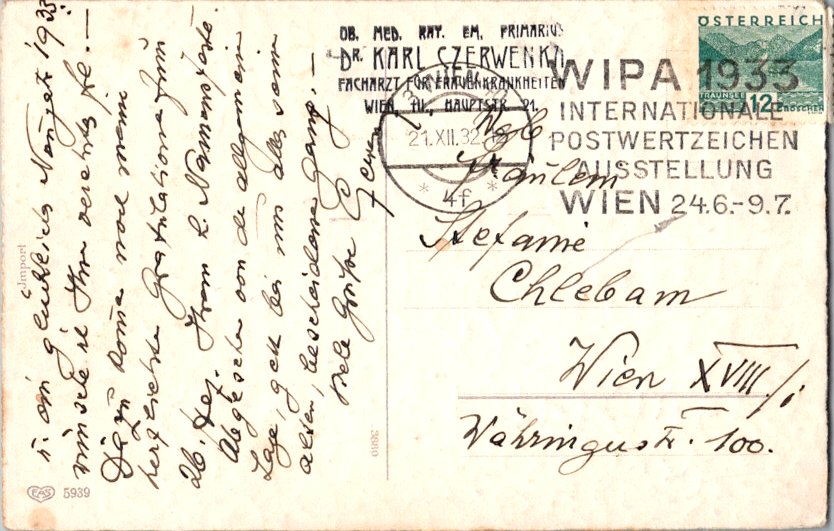 OB. MED. RAT. EM. PRIMARIUS
DR. KARL CZERWENKA
FACHARZT FÜR FRAUENKRANKHEITEN
WIEN, III., HAUPTSTR. 21.
ÖSTERREICH
TRAUNSEE 12 GROSCHEN
WIPA 1933
INTERNATIONALE
POSTWERTZEICHEN
AUSSTELLUNG
WIEN 24.6.-9.7.
21.XII.32
* 4f *
u. ein glückliches Neujahr 1933
wünscht Ihr
Dazu komme noch meine
herzlichste Gratulation zum
26. Dez. Ihrem l. Namensfeste.
Abgesehen von der allgemeinen
Lage, geht bei uns alles seinen
alten, bescheidenen Gang.—
Viele Grüße
Fräulein
Stefanie
Chlebam
Wien XVIII/1
Währingerstr. 100.
Import
EAS 5939